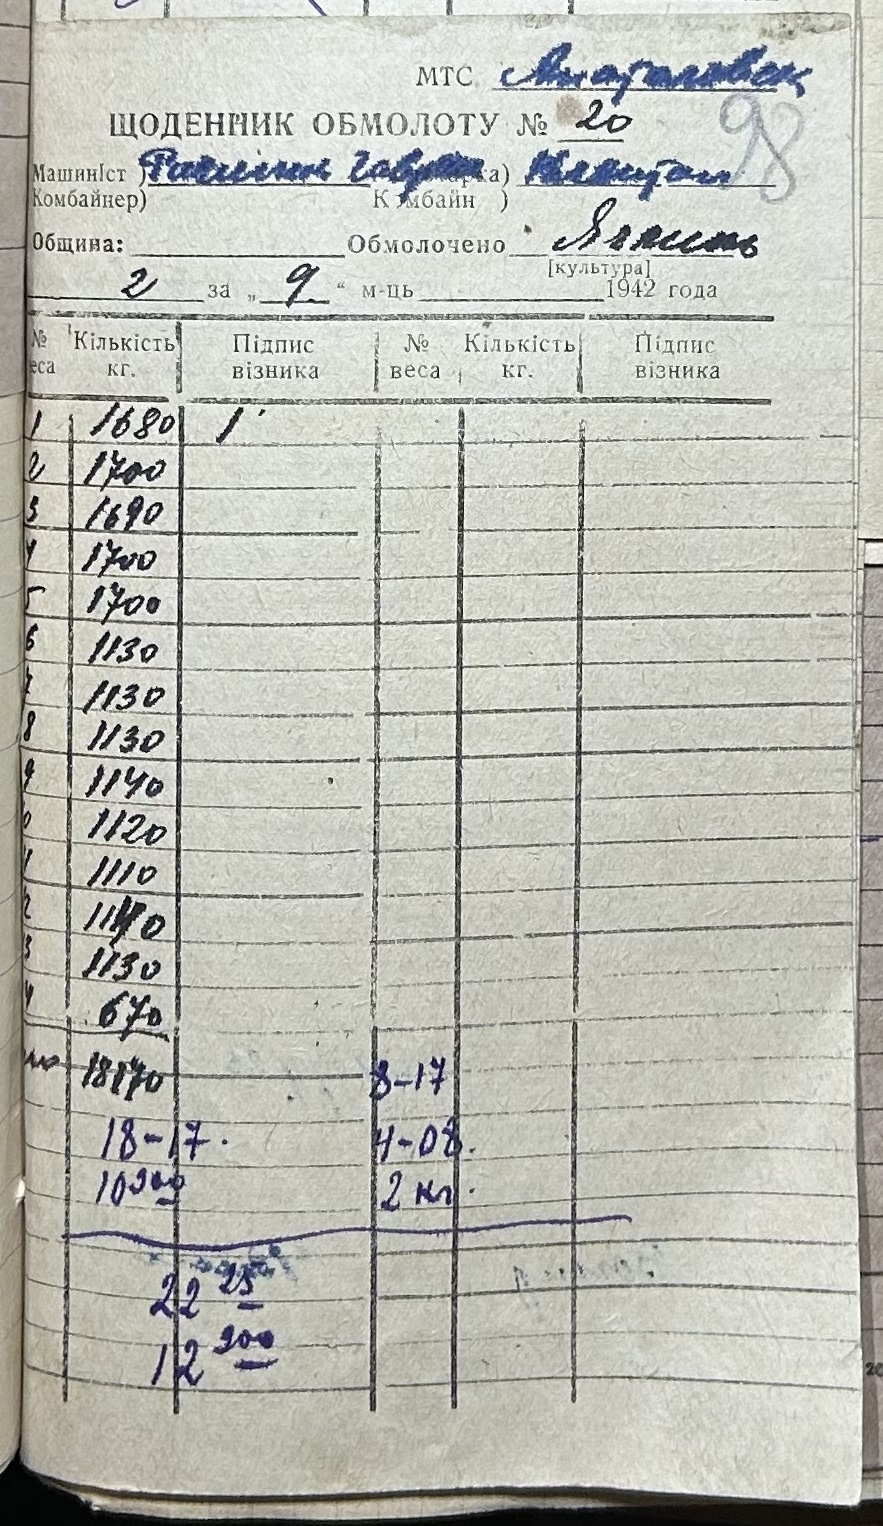 МТС
98
ЩОДЕННИК ОБМОЛОТУ № 20
Машиніст ) арка)
Комбайнер) Комбайн )
Община: Обмолочено Ячмінь
[культура]
2 за „ 9 “ м-ць 1942 года
№ веса Кількість кг. Підпис візника № веса Кількість кг. Підпис візника
1 1680 1
2 1700
3 1690
4 1700
5 1700
6 1130
7 1130
8 1130
9 1140
0 1120
1 1110
2 1140
3 1130
4 670
18170 8-17
18-17. 4-08.
10900 2 кг.
22 25
12 900